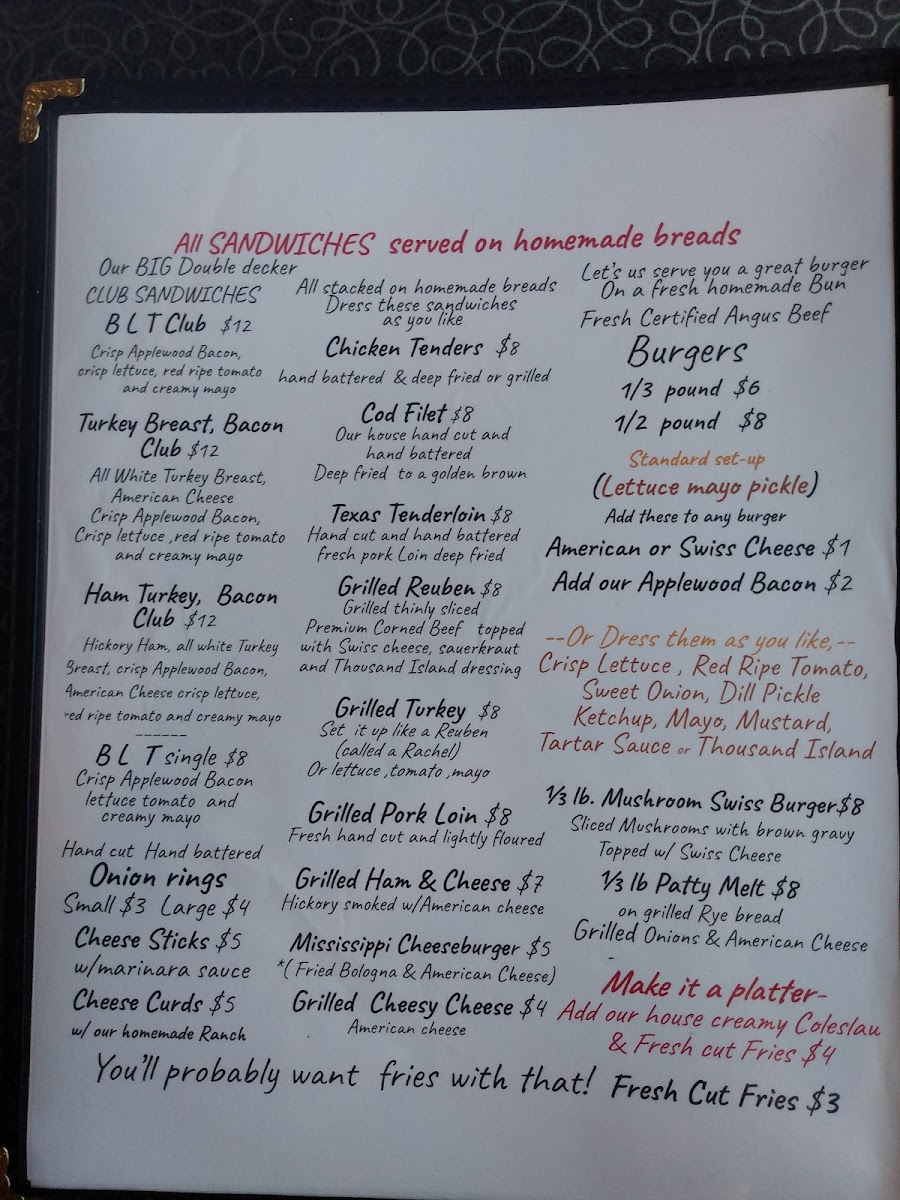 All SANDWICHES served on homemade breads
Our BIG Double decker
CLUB SANDWICHES
B L T Club $12
Crisp Applewood Bacon,
crisp lettuce, red ripe tomato
and creamy mayo
Turkey Breast, Bacon
Club $12
All White Turkey Breast,
American Cheese
Crisp Applewood Bacon,
Crisp lettuce ,red ripe tomato
and creamy mayo
Ham Turkey, Bacon
Club $12
Hickory Ham, all white Turkey
Breast, crisp Applewood Bacon,
American Cheese crisp lettuce,
red ripe tomato and creamy mayo
------
B L T single $8
Crisp Applewood Bacon
lettuce tomato and
creamy mayo
Hand cut Hand battered
Onion rings
Small $3 Large $4
Cheese Sticks $5
w/marinara sauce
Cheese Curds $5
w/ our homemade Ranch
All stacked on homemade breads
Dress these sandwiches
as you like
Chicken Tenders $8
hand battered & deep fried or grilled
Cod Filet $8
Our house hand cut and
hand battered
Deep fried to a golden brown
Texas Tenderloin $8
Hand cut and hand battered
fresh pork Loin deep fried
Grilled Reuben $8
Grilled thinly sliced
Premium Corned Beef topped
with Swiss cheese, sauerkraut
and Thousand Island dressing
Grilled Turkey $8
Set it up like a Reuben
(called a Rachel)
Or lettuce ,tomato ,mayo
Grilled Pork Loin $8
Fresh hand cut and lightly floured
Grilled Ham & Cheese $7
Hickory smoked w/American cheese
Mississippi Cheeseburger $5
*(Fried Bologna & American Cheese)
Grilled Cheesy Cheese $4
American cheese
Let's us serve you a great burger
On a fresh homemade Bun
Fresh Certified Angus Beef
Burgers
1/3 pound $6
1/2 pound $8
Standard set-up
(Lettuce mayo pickle)
Add these to any burger
American or Swiss Cheese $1
Add our Applewood Bacon $2
--Or Dress them as you like,--
Crisp Lettuce , Red Ripe Tomato,
Sweet Onion, Dill Pickle
Ketchup, Mayo, Mustard,
Tartar Sauce or Thousand Island
⅓ lb. Mushroom Swiss Burger$8
Sliced Mushrooms with brown gravy
Topped w/ Swiss Cheese
⅓ lb Patty Melt $8
on grilled Rye bread
Grilled Onions & American Cheese
Make it a platter-
Add our house creamy Coleslaw
& Fresh cut Fries $4
You'll probably want fries with that! Fresh Cut Fries $3